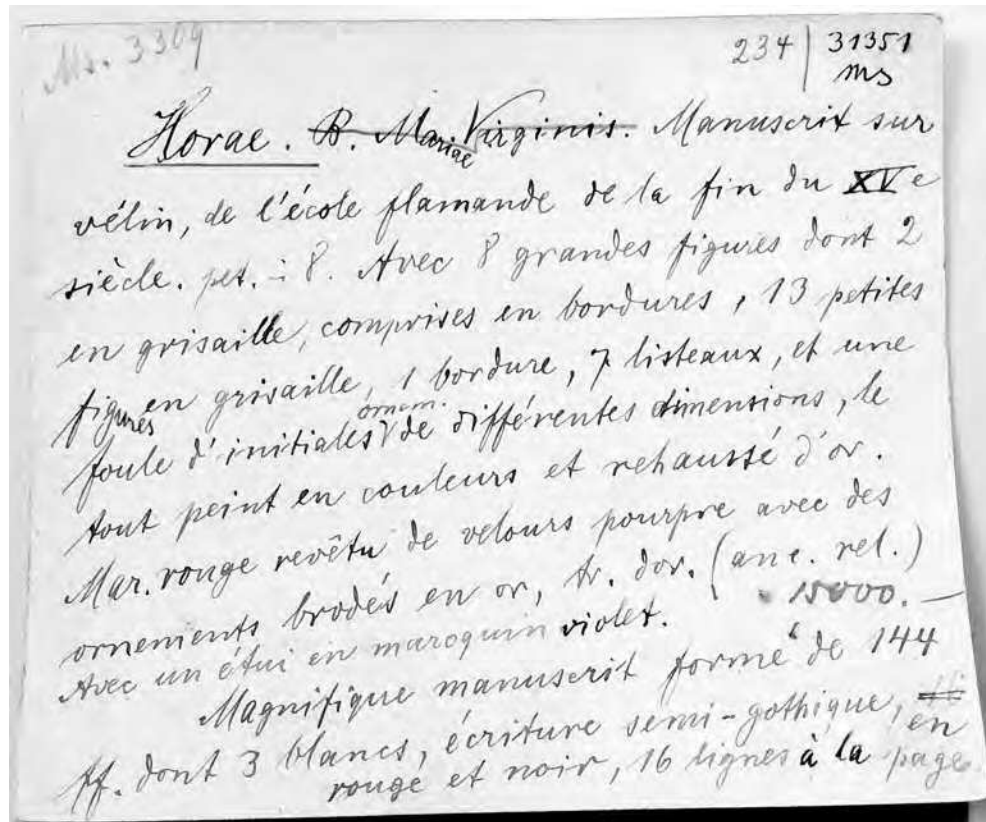 Ms. 3309
234 | 31351
ms
Horae. B. Mariae Virginis. Manuscrit sur
vélin, de l'école flamande de la fin du XVe
siècle. pet. i 8. Avec 8 grandes figures dont 2
en grisaille, comprises en bordures, 13 petites
figures en grisaille, 1 bordure, 7 listeaux, et une
foule d'initiales ornem. de différentes dimensions, le
tout peint en couleurs et rehaussé d'or.
Mar. rouge revêtu de velours pourpre avec des
ornements brodés en or, tr. dor. (anc. rel.)
Avec un étui en maroquin violet. 15000.—
Magnifique manuscrit formé de 144
ff. dont 3 blancs, écriture semi-gothique, en
rouge et noir, 16 lignes à la page.